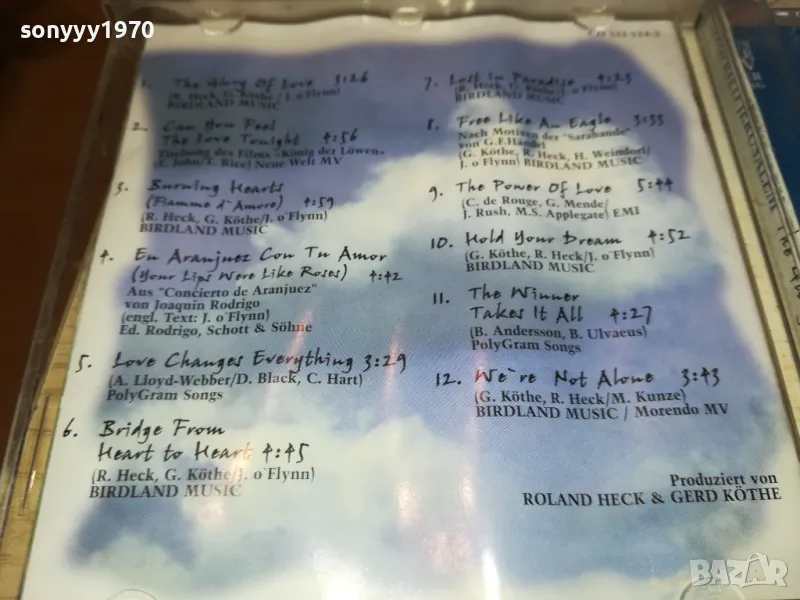 sonyyy1970
1. The Glory Of Love 3:26
(R. Heck, G. Köthe/J. o'Flynn)
BIRDLAND MUSIC
2. Can You Feel
The Love Tonight 4:56
Titelsong des Films "König der Löwen"
(E. John/T. Rice) Neue Welt MV
3. Burning Hearts
(Fiamme d'Amore) 4:59
(R. Heck, G. Köthe/J. o'Flynn)
BIRDLAND MUSIC
4. En Aranjuez Con Tu Amor
(Your Lips Were Like Roses) 4:42
Aus "Concierto de Aranjuez"
von Joaquin Rodrigo
(engl. Text: J. o'Flynn)
Ed. Rodrigo, Schott & Söhne
5. Love Changes Everything 3:29
(A. Lloyd-Webber/D. Black, C. Hart)
PolyGram Songs
6. Bridge From
Heart to Heart 4:45
(R. Heck, G. Köthe/J. o'Flynn)
BIRDLAND MUSIC
7. Lost In Paradise 4:23
(R. Heck, G. Köthe/J. o'Flynn)
BIRDLAND MUSIC
8. Free Like An Eagle 3:33
Nach Motiven der "Sarabande"
von G.F.Händel
(G. Köthe, R. Heck, H. Weindorf/
J. o'Flynn) BIRDLAND MUSIC
9. The Power Of Love 5:44
(C. de Rouge, G. Mende/
J. Rush, M.S. Applegate) EMI
10. Hold Your Dream 4:52
(G. Köthe, R. Heck/J. o'Flynn)
BIRDLAND MUSIC
11. The Winner
Takes It All 4:27
(B. Andersson, B. Ulvaeus)
PolyGram Songs
12. We're Not Alone 3:43
(G. Köthe, R. Heck/M. Kunze)
BIRDLAND MUSIC / Morendo MV
Produziert von
ROLAND HECK & GERD KÖTHE
JERUSALEM
BAZAR